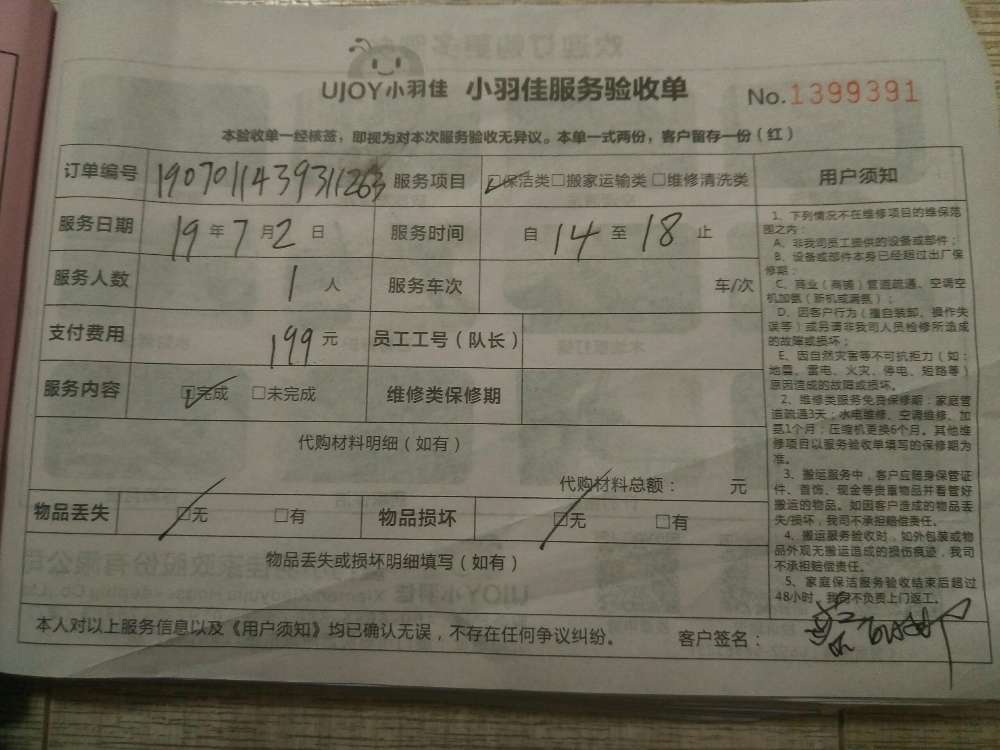 UJOY小羽佳 小羽佳服务验收单 No.1399391
本验收单一经核签，即视为对本次服务验收无异议。本单一式两份，客户留存一份（红）
订单编号 1907011439311263 服务项目 保洁类 搬家运输类 维修清洗类
服务日期 19 年 7 月 2 日 服务时间 自 14 至 18 止
服务人数 1 人 服务车次 车/次
支付费用 199 元 员工工号（队长）
服务内容 完成 未完成 维修类保修期
代购材料明细（如有）
代购材料总额： 元
物品丢失 无 有 物品损坏 无 有
物品丢失或损坏明细填写（如有）
本人对以上服务信息以及《用户须知》均已确认无误，不存在任何争议纠纷。 客户签名：
用户须知
1、下列情况不在维修项目的维保范
围之内：
A、非我司员工提供的设备或部件；
B、设备或部件本身已经超过出厂保
修期；
C、商业（商铺）管道疏通、空调空
机加氨（新机或满氨）；
D、因客户行为（擅自装卸、操作失
误等）或另请非我司人员检修所造成
的故障或损坏；
E、因自然灾害等不可抗拒力（如：
地震、雷电、火灾、停电、短路等）
原因造成的故障或损坏。
2、维修类服务免费保修期：家庭管
道疏通3天；水电维修、空调维修、加
氨1个月；压缩机更换6个月。其他维
修项目以服务验收单填写的保修期为
准。
3、搬运服务中，客户应随身保管证
件、首饰、现金等贵重物品并看管好
搬运的物品。如因客户造成的物品丢
失/损坏，我司不承担赔偿责任。
4、搬运服务验收时，如外包装或物
品外观无搬运造成的损伤痕迹，我司
不承担赔偿责任。
5、家庭保洁服务验收结束后超过
48小时，我司不负责上门返工。